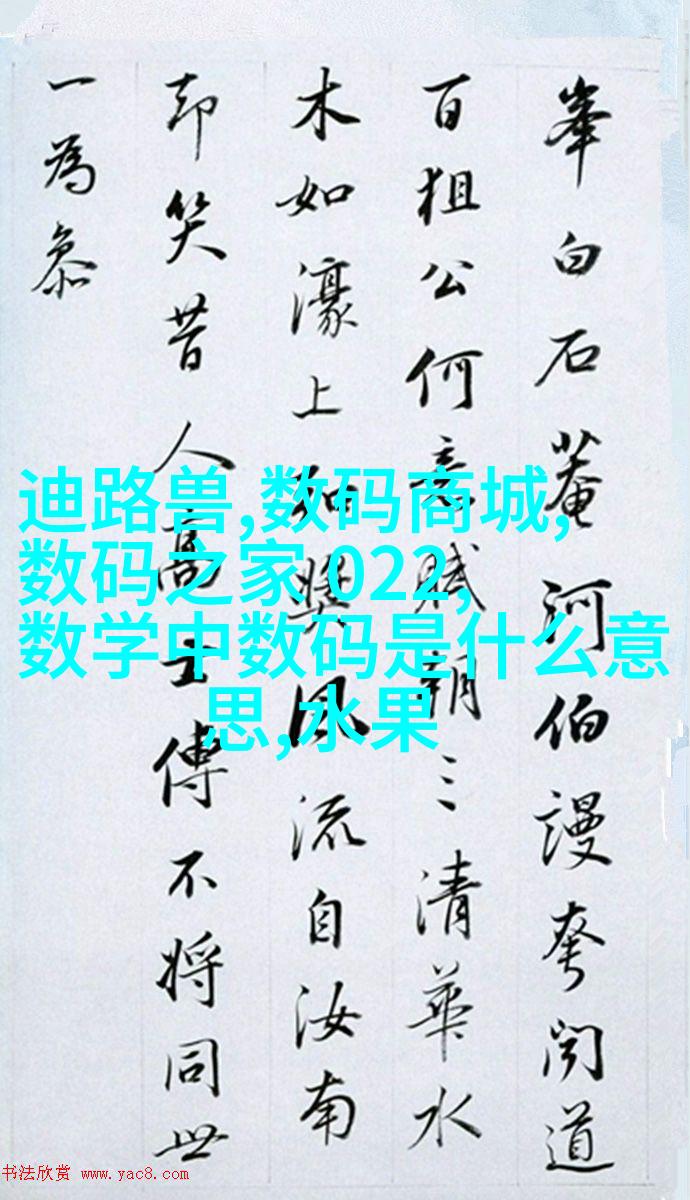 峯白石菴河伯謾夸闻道
百狙公何意賦朝三清華水
木如濠上風流自汝南
却笑昔人高士傳不將同世
一為叅
迪路兽,数码商城,
数码之家 022,
数学中数码是什么意
思,水果
书法欣赏 www.yac8.com